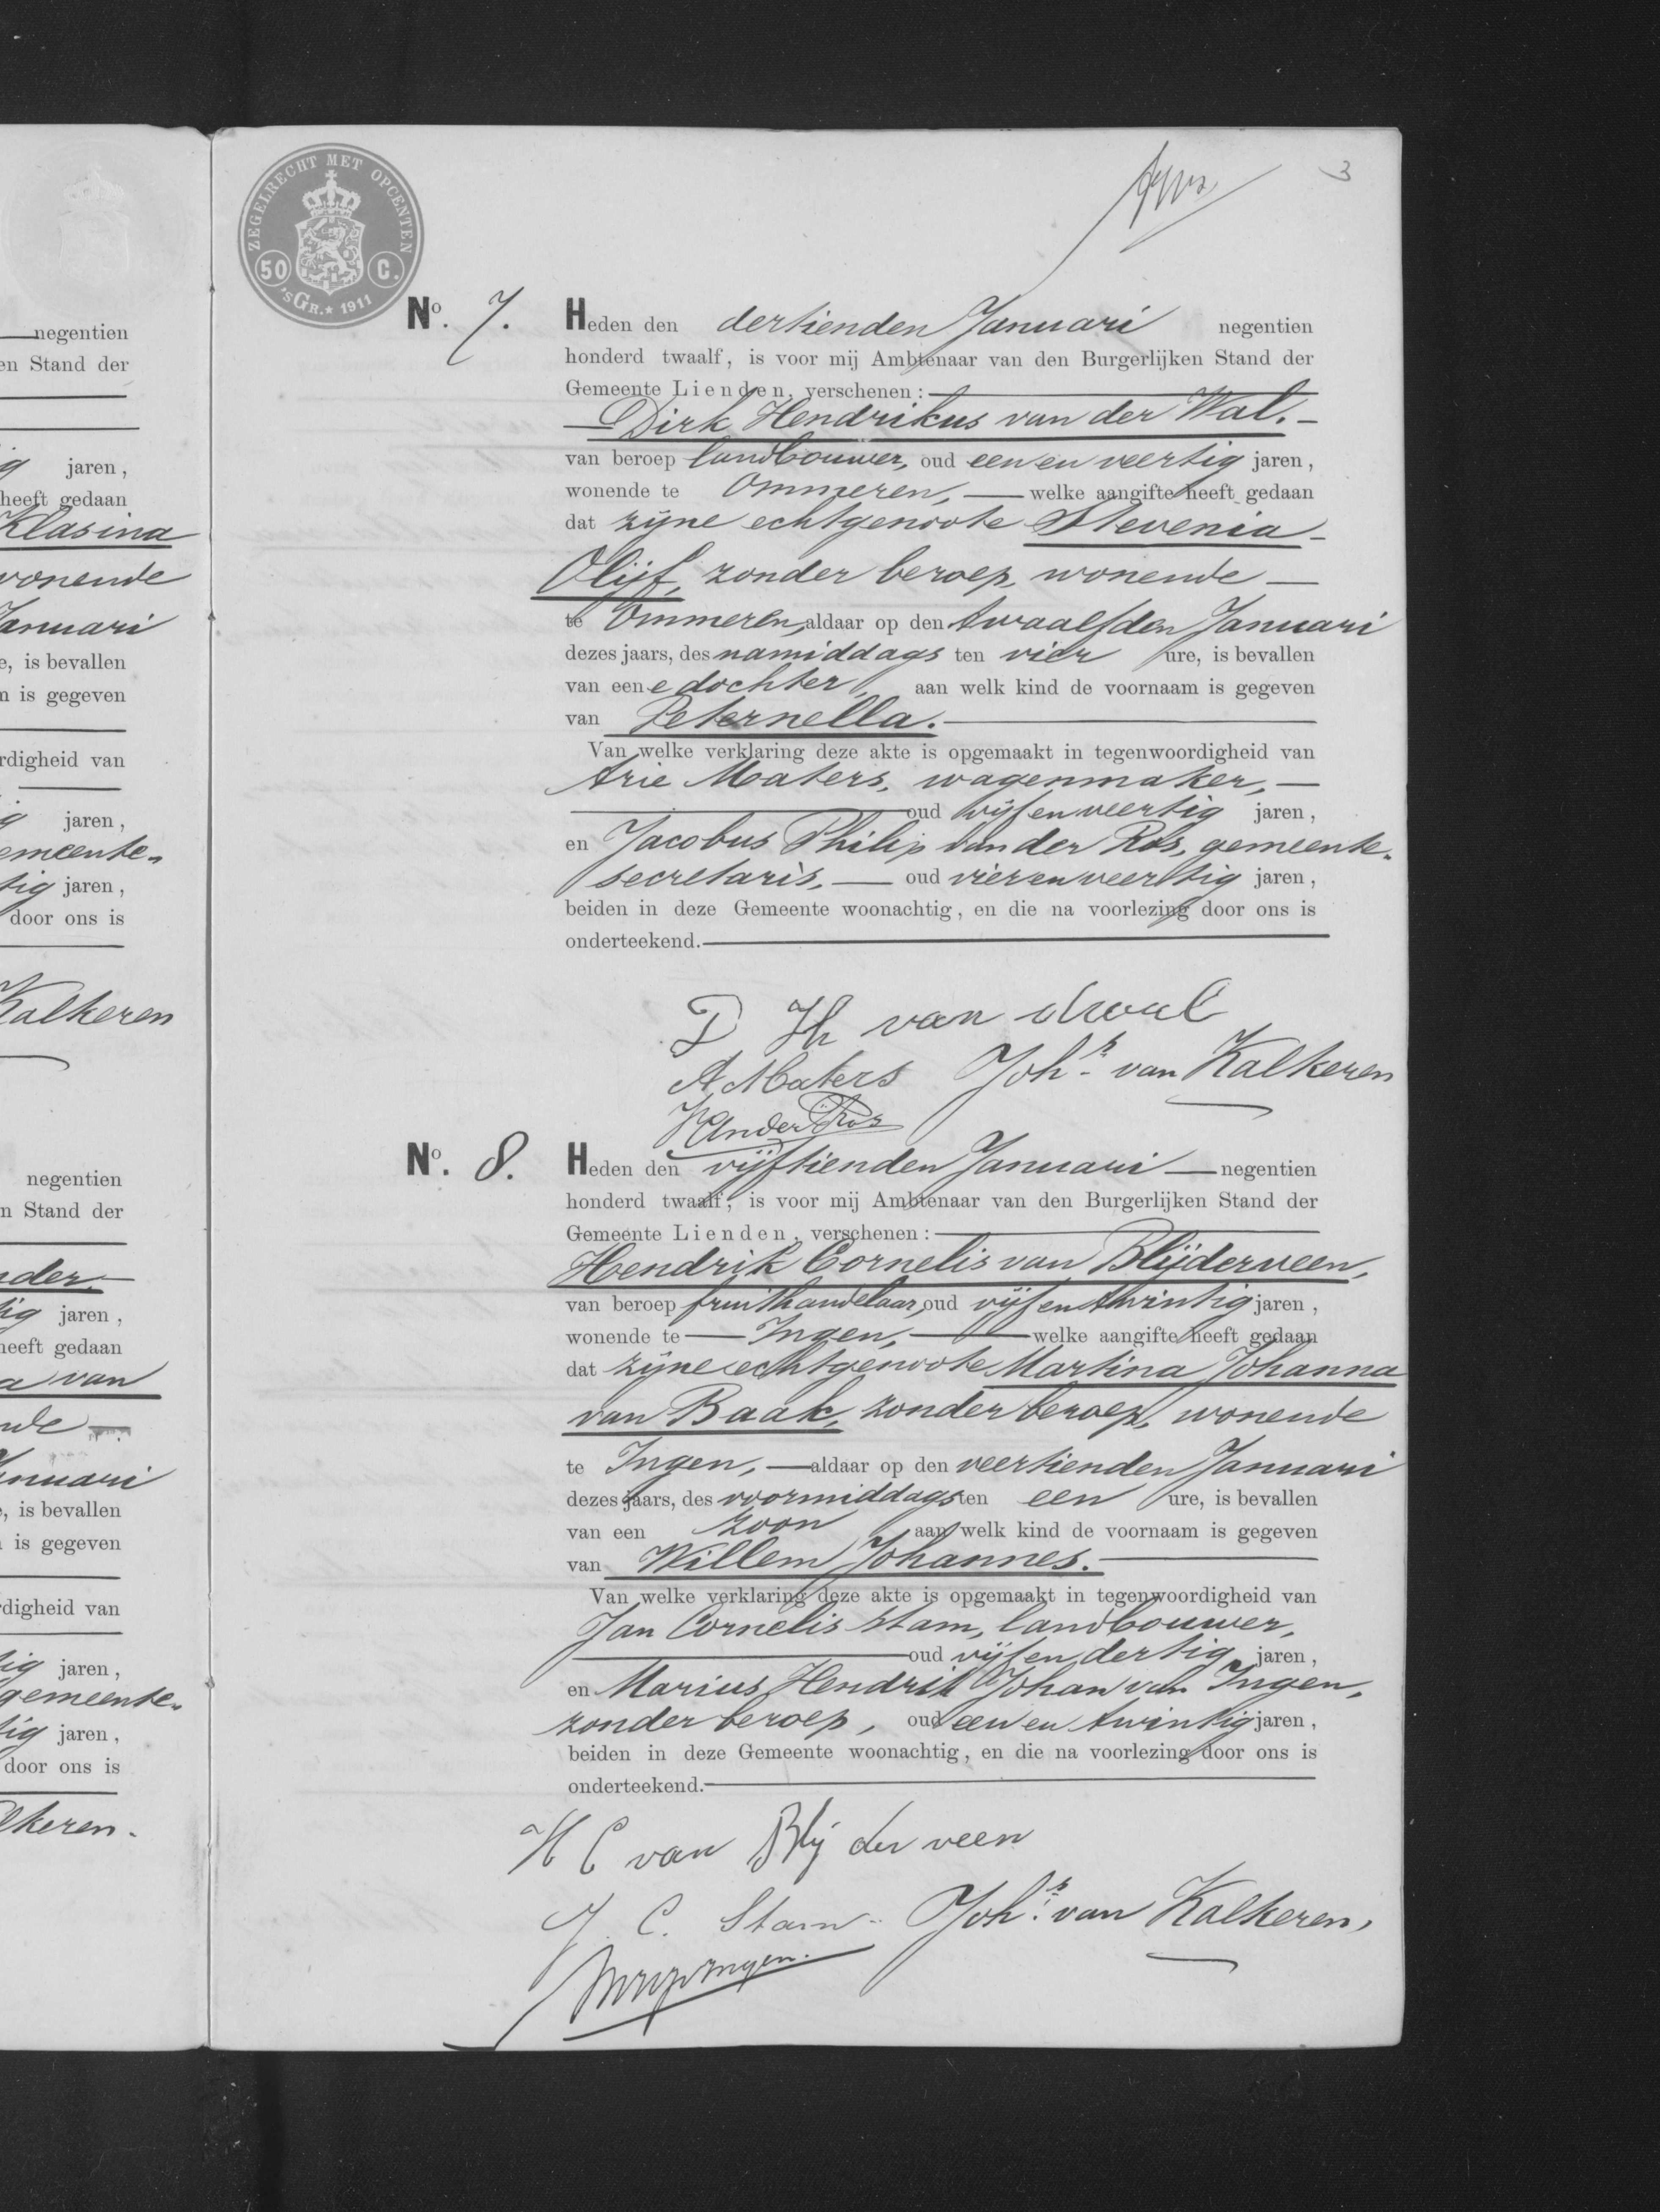 negentien
en Stand der
g jaren,
heeft gedaan
Klasina
wonende
Januari
e, is bevallen
n is gegeven
rdigheid van
g jaren,
emeente-
tig jaren,
door ons is
Kalkeren
negentien
n Stand der
nder
tig jaren,
heeft gedaan
a van
nde
Januari
e, is bevallen
is gegeven
rdigheid van
tig jaren,
gemeente-
tig jaren,
door ons is
lkeren.
ZEGELRECHT MET OPCENTEN
50 C.
'SGR. * 1911
3
No. 7. Heden den dertienden Januari negentien
honderd twaalf, is voor mij Ambtenaar van den Burgerlijken Stand der
Gemeente Lienden, verschenen:
Dirk Hendrikus van der Wal.
van beroep landbouwer, oud een en veertig jaren,
wonende te Ommeren, welke aangifte heeft gedaan
dat zijne echtgenoote Stevenia
Olijf, zonder beroep, wonende
te Ommeren, aldaar op den twaalfden Januari
dezes jaars, des namiddags ten vier ure, is bevallen
van eene dochter, aan welk kind de voornaam is gegeven
van Peternella.
Van welke verklaring deze akte is opgemaakt in tegenwoordigheid van
Arie Maters, wagenmaker,
oud vijf en veertig jaren,
en Jacobus Philip van der Ros, gemeente-
secretaris, oud vier en veertig jaren,
beiden in deze Gemeente woonachtig, en die na voorlezing door ons is
onderteekend.
D H van dwal
A Maters Johs van Kalkeren
VanderRos
No. 8. Heden den vijftienden Januari negentien
honderd twaalf, is voor mij Ambtenaar van den Burgerlijken Stand der
Gemeente Lienden, verschenen:
Hendrik Cornelis van Blijderveen,
van beroep fruithandelaar, oud vijf en twintig jaren,
wonende te Ingen, welke aangifte heeft gedaan
dat zijne echtgenoote Martina Johanna
van Baak, zonder beroep, wonende
te Ingen, aldaar op den veertienden Januari
dezes jaars, des voormiddags ten een ure, is bevallen
van een zoon aan welk kind de voornaam is gegeven
van Willem Johannes.
Van welke verklaring deze akte is opgemaakt in tegenwoordigheid van
Jan Cornelis Stam, landbouwer,
oud vijf en dertig jaren,
en Marius Hendrik Johan van Ingen,
zonder beroep, oud een en twintig jaren,
beiden in deze Gemeente woonachtig, en die na voorlezing door ons is
onderteekend.
H C van Blij der veen
J. C. Stam Johs van Kalkeren,